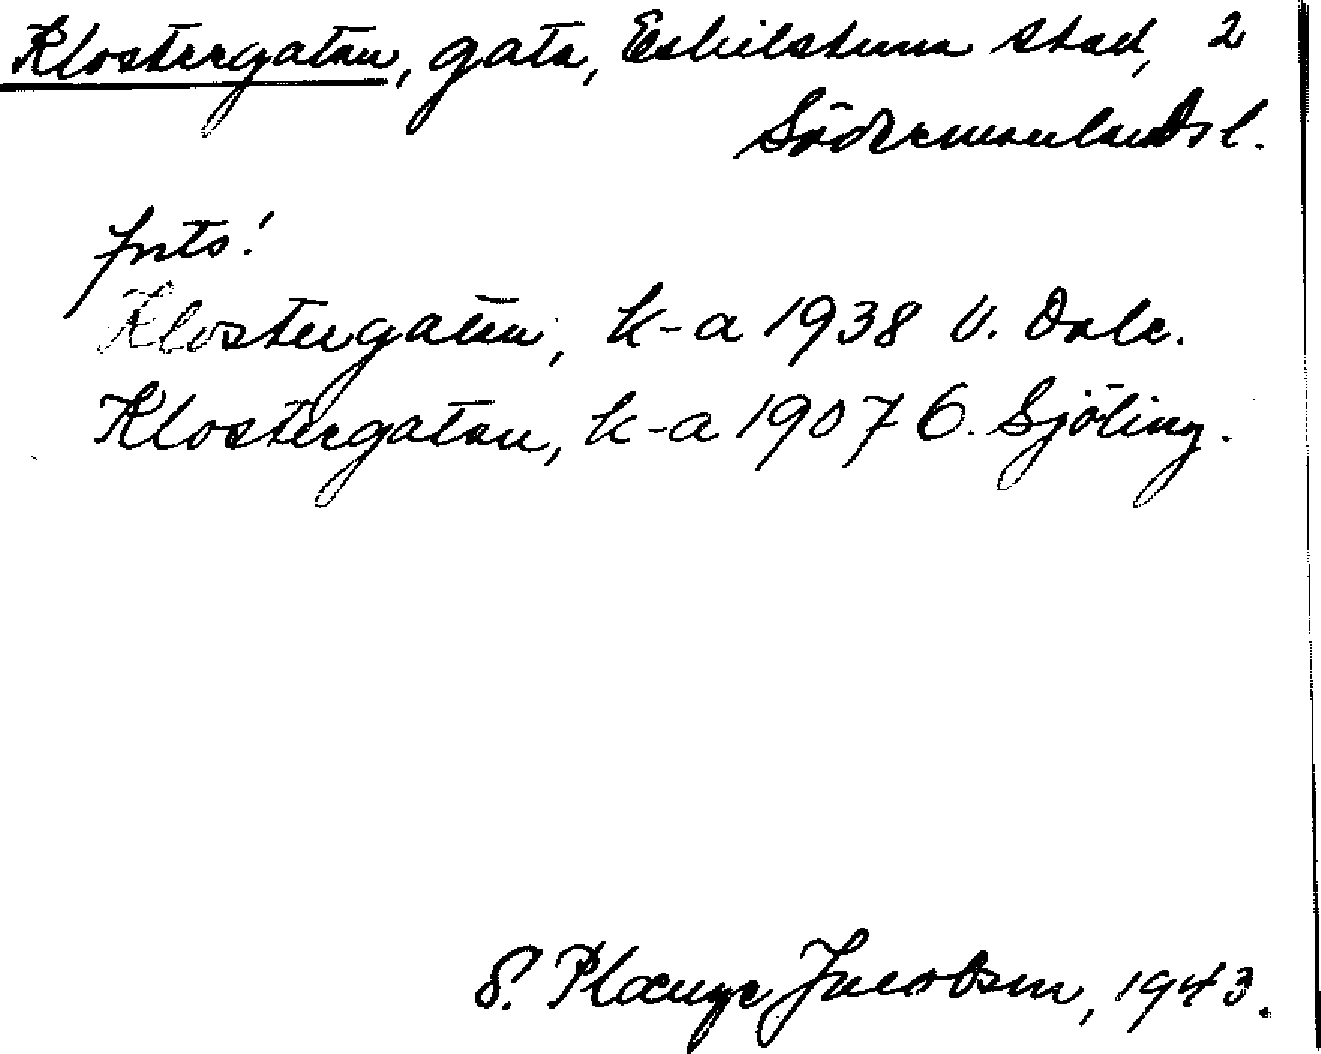 Klostergatan, gata, Eskilstuna stad, 2
Södermanlands l.
forts!
Klostergatan, k-a 1938 V. Dale.
Klostergatan, k-a 1907 G. Sjöling.
S. Plænge Jacobson, 1943.